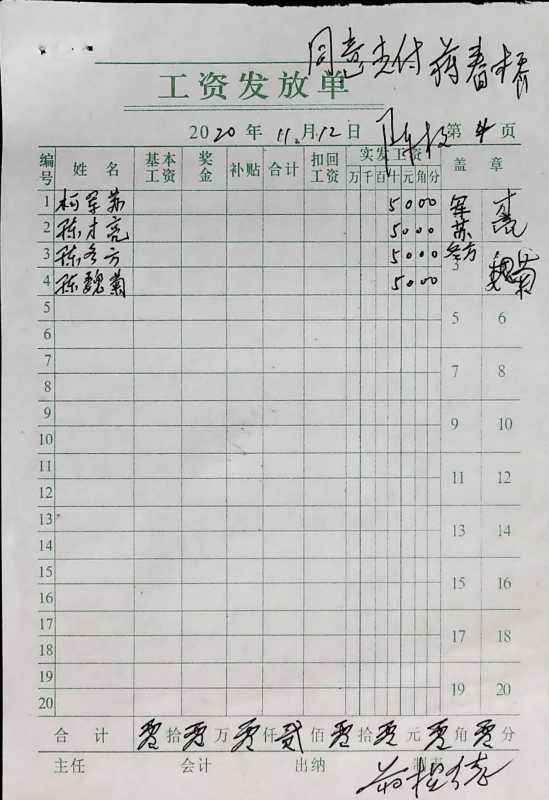 同意支付 蒋春根
工资发放单
2020 年 11 月 12 日 第 4 页
编号 姓名 基本工资 奖金 补贴 合计 扣回工资 实发工资 盖章
万 千 百 十 元 角 分
1 柯军苏 5000 军苏 才亮
2 陈才亮 5000
3 陈冬方 5000 冬方 3 魏菊
4 陈魏菊 5000
5 5 6
6
7 7 8
8
9 9 10
10
11 11 12
12
13 13 14
14
15 15 16
16
17 17 18
18
19 19 20
20
合计 零拾零万零仟贰佰零拾零元零角零分
主任 会计 出纳 制表